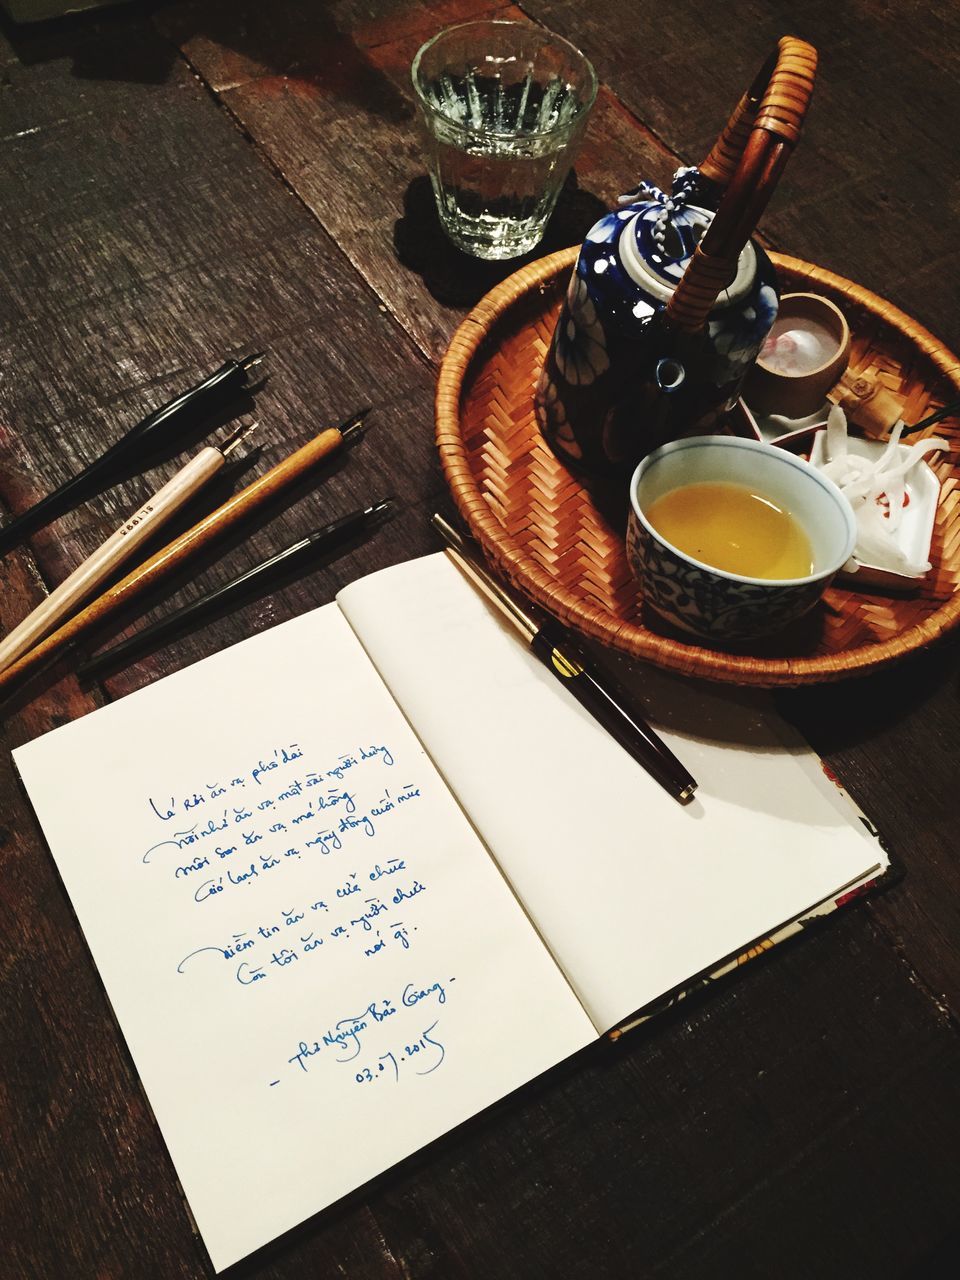 Lá rơi ăn vạ phố dài
Nỗi nhớ ăn vạ một vài người dưng
Môi son ăn vạ má hồng
Gió lạnh ăn vạ ngày đông cuối mùa
Niềm tin ăn vạ cửa chùa
Còn tôi ăn vạ người chưa
nói gì.
- Thơ Nguyễn Bảo Giang -
03.07.2015